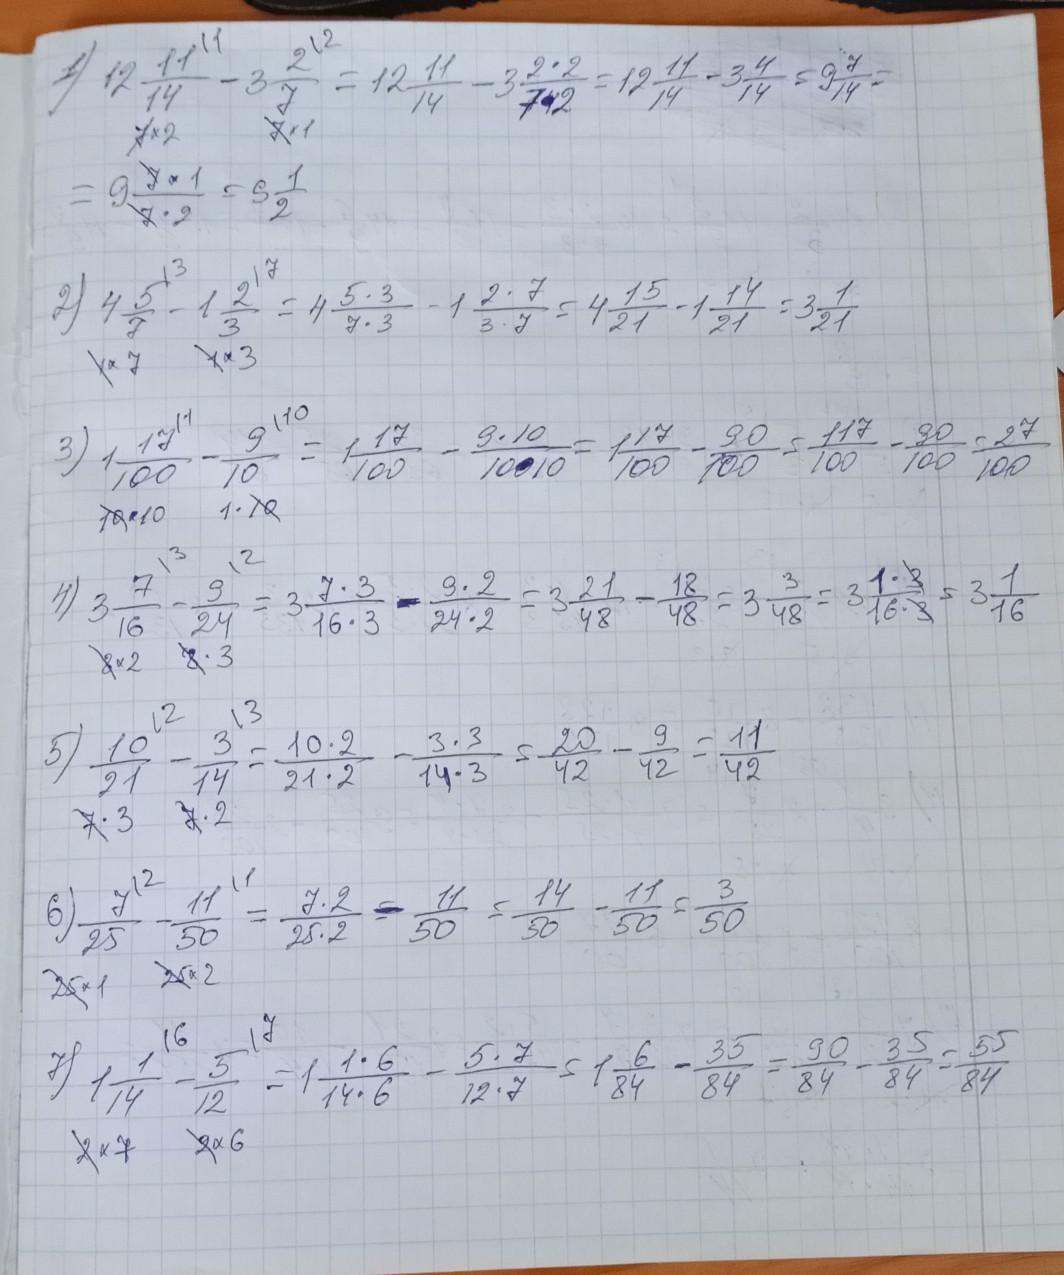 1) 12 11\1/14 - 3 2\2/7 = 12 11/14 - 3 2·2/7·2 = 12 11/14 - 3 4/14 = 9 7/14 =
7×2 7×1
= 9 7·1/7·2 = 9 1/2
2) 4 5\3/7 - 1 2\7/3 = 4 5·3/7·3 - 1 2·7/3·7 = 4 15/21 - 1 14/21 = 3 1/21
1×7 1×3
3) 1 17\1/100 - 9\10/10 = 1 17/100 - 9·10/10·10 = 1 17/100 - 90/100 = 117/100 - 90/100 = 27/100
10·10 1·10
4) 3 7\3/16 - 9\2/24 = 3 7·3/16·3 - 9·2/24·2 = 3 21/48 - 18/48 = 3 3/48 = 3 1·3/16·3 = 3 1/16
8×2 8·3
5) 10\2/21 - 3\3/14 = 10·2/21·2 - 3·3/14·3 = 20/42 - 9/42 = 11/42
7·3 7·2
6) 7\2/25 - 11\1/50 = 7·2/25·2 - 11/50 = 14/50 - 11/50 = 3/50
25×1 25×2
7) 1 1\6/14 - 5\7/12 = 1 1·6/14·6 - 5·7/12·7 = 1 6/84 - 35/84 = 90/84 - 35/84 = 55/84
2×7 2×6